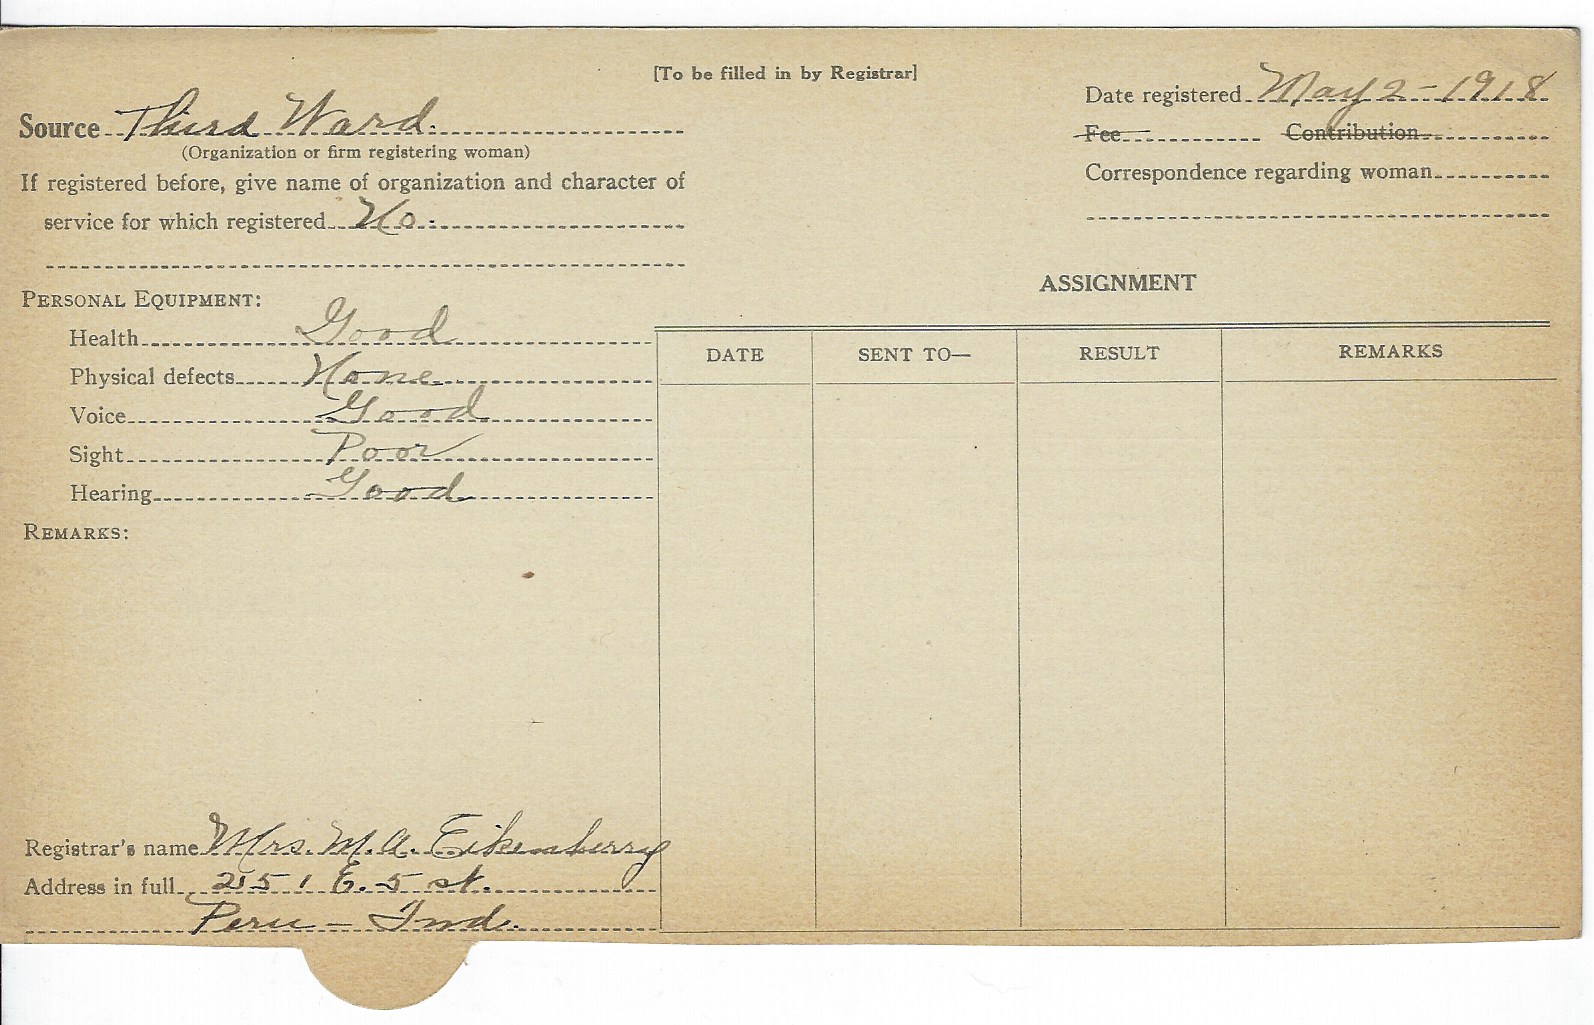 [To be filled in by Registrar]
Source Third Ward.
(Organization or firm registering woman)
If registered before, give name of organization and character of
service for which registered No.
Date registered May 2 - 1918
Fee Contribution
Correspondence regarding woman
PERSONAL EQUIPMENT:
Health Good
Physical defects None
Voice Good
Sight Poor
Hearing Good
REMARKS:
ASSIGNMENT
DATE SENT TO— RESULT REMARKS
Registrar's name Mrs. M. A. Eikenberry
Address in full 251 E. 5 st.
Peru - Ind.